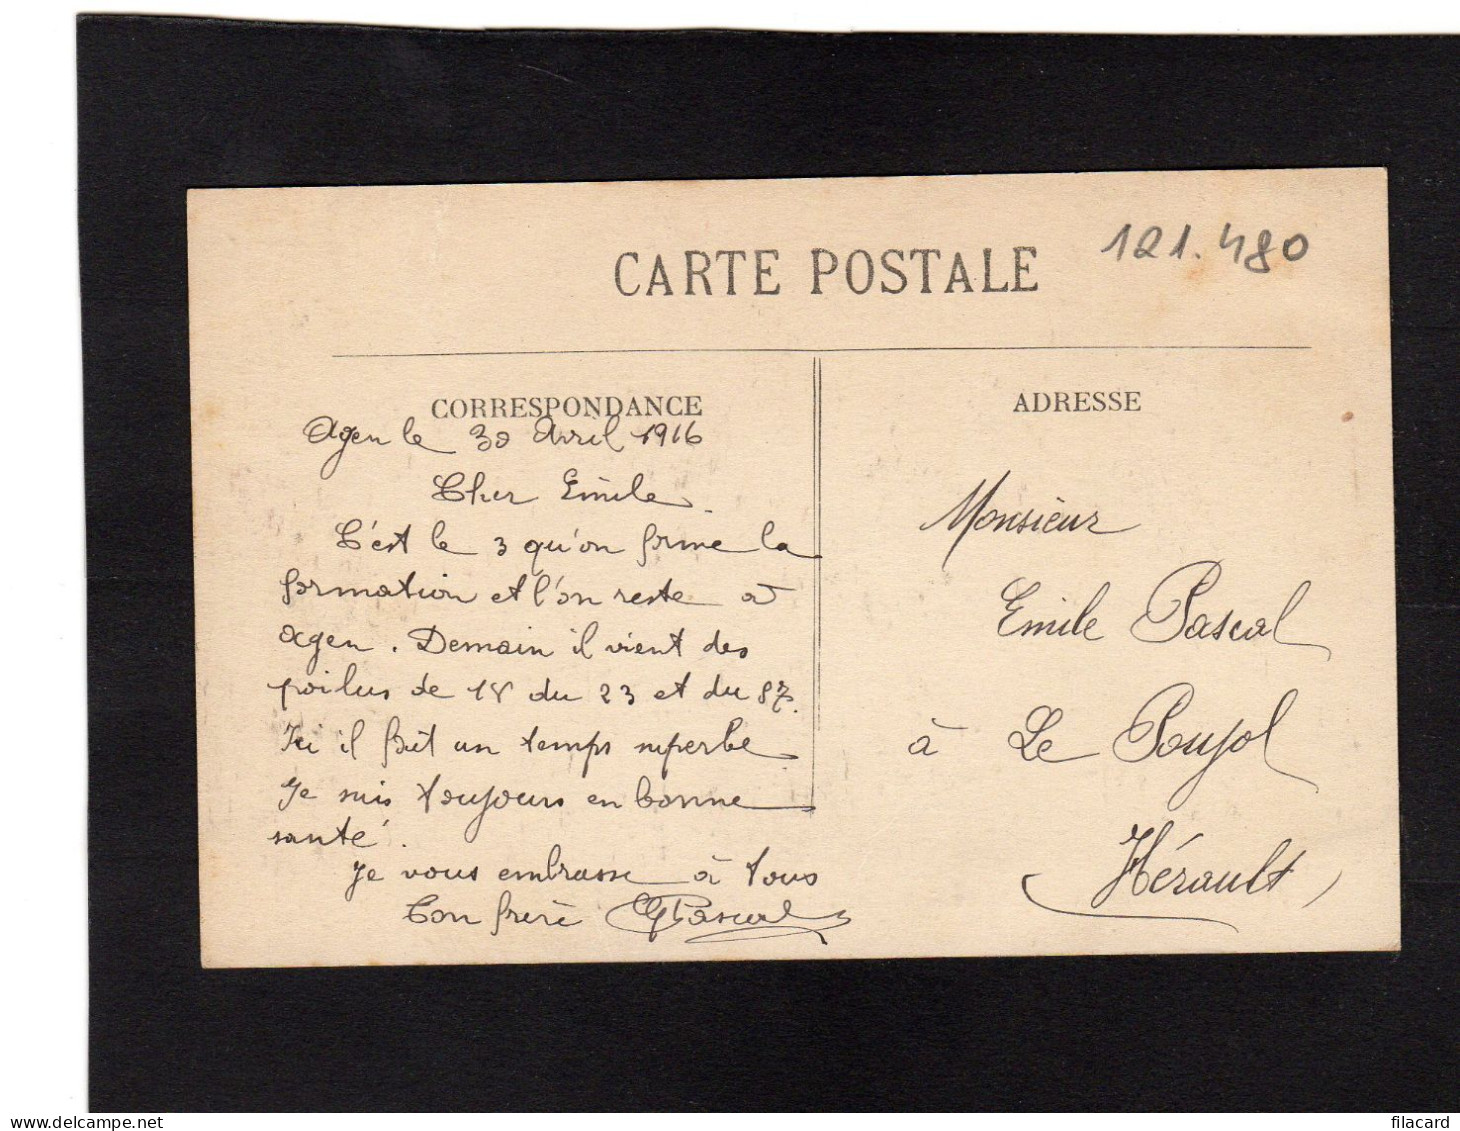 CARTE POSTALE
121.480
CORRESPONDANCE
Agen le 30 Avril 1916
Cher Emile.
C'est le 3 qu'on forme la
formation et l'on reste à
Agen. Demain il vient des
poilus de 18 du 23 et du 87.
Ici il fait un temps superbe
Je suis toujours en bonne
santé.
Je vous embrasse à tous
Ton frère Pascal
ADRESSE
Monsieur
Emile Pascal
à Le Poujol
(Hérault)
filacard